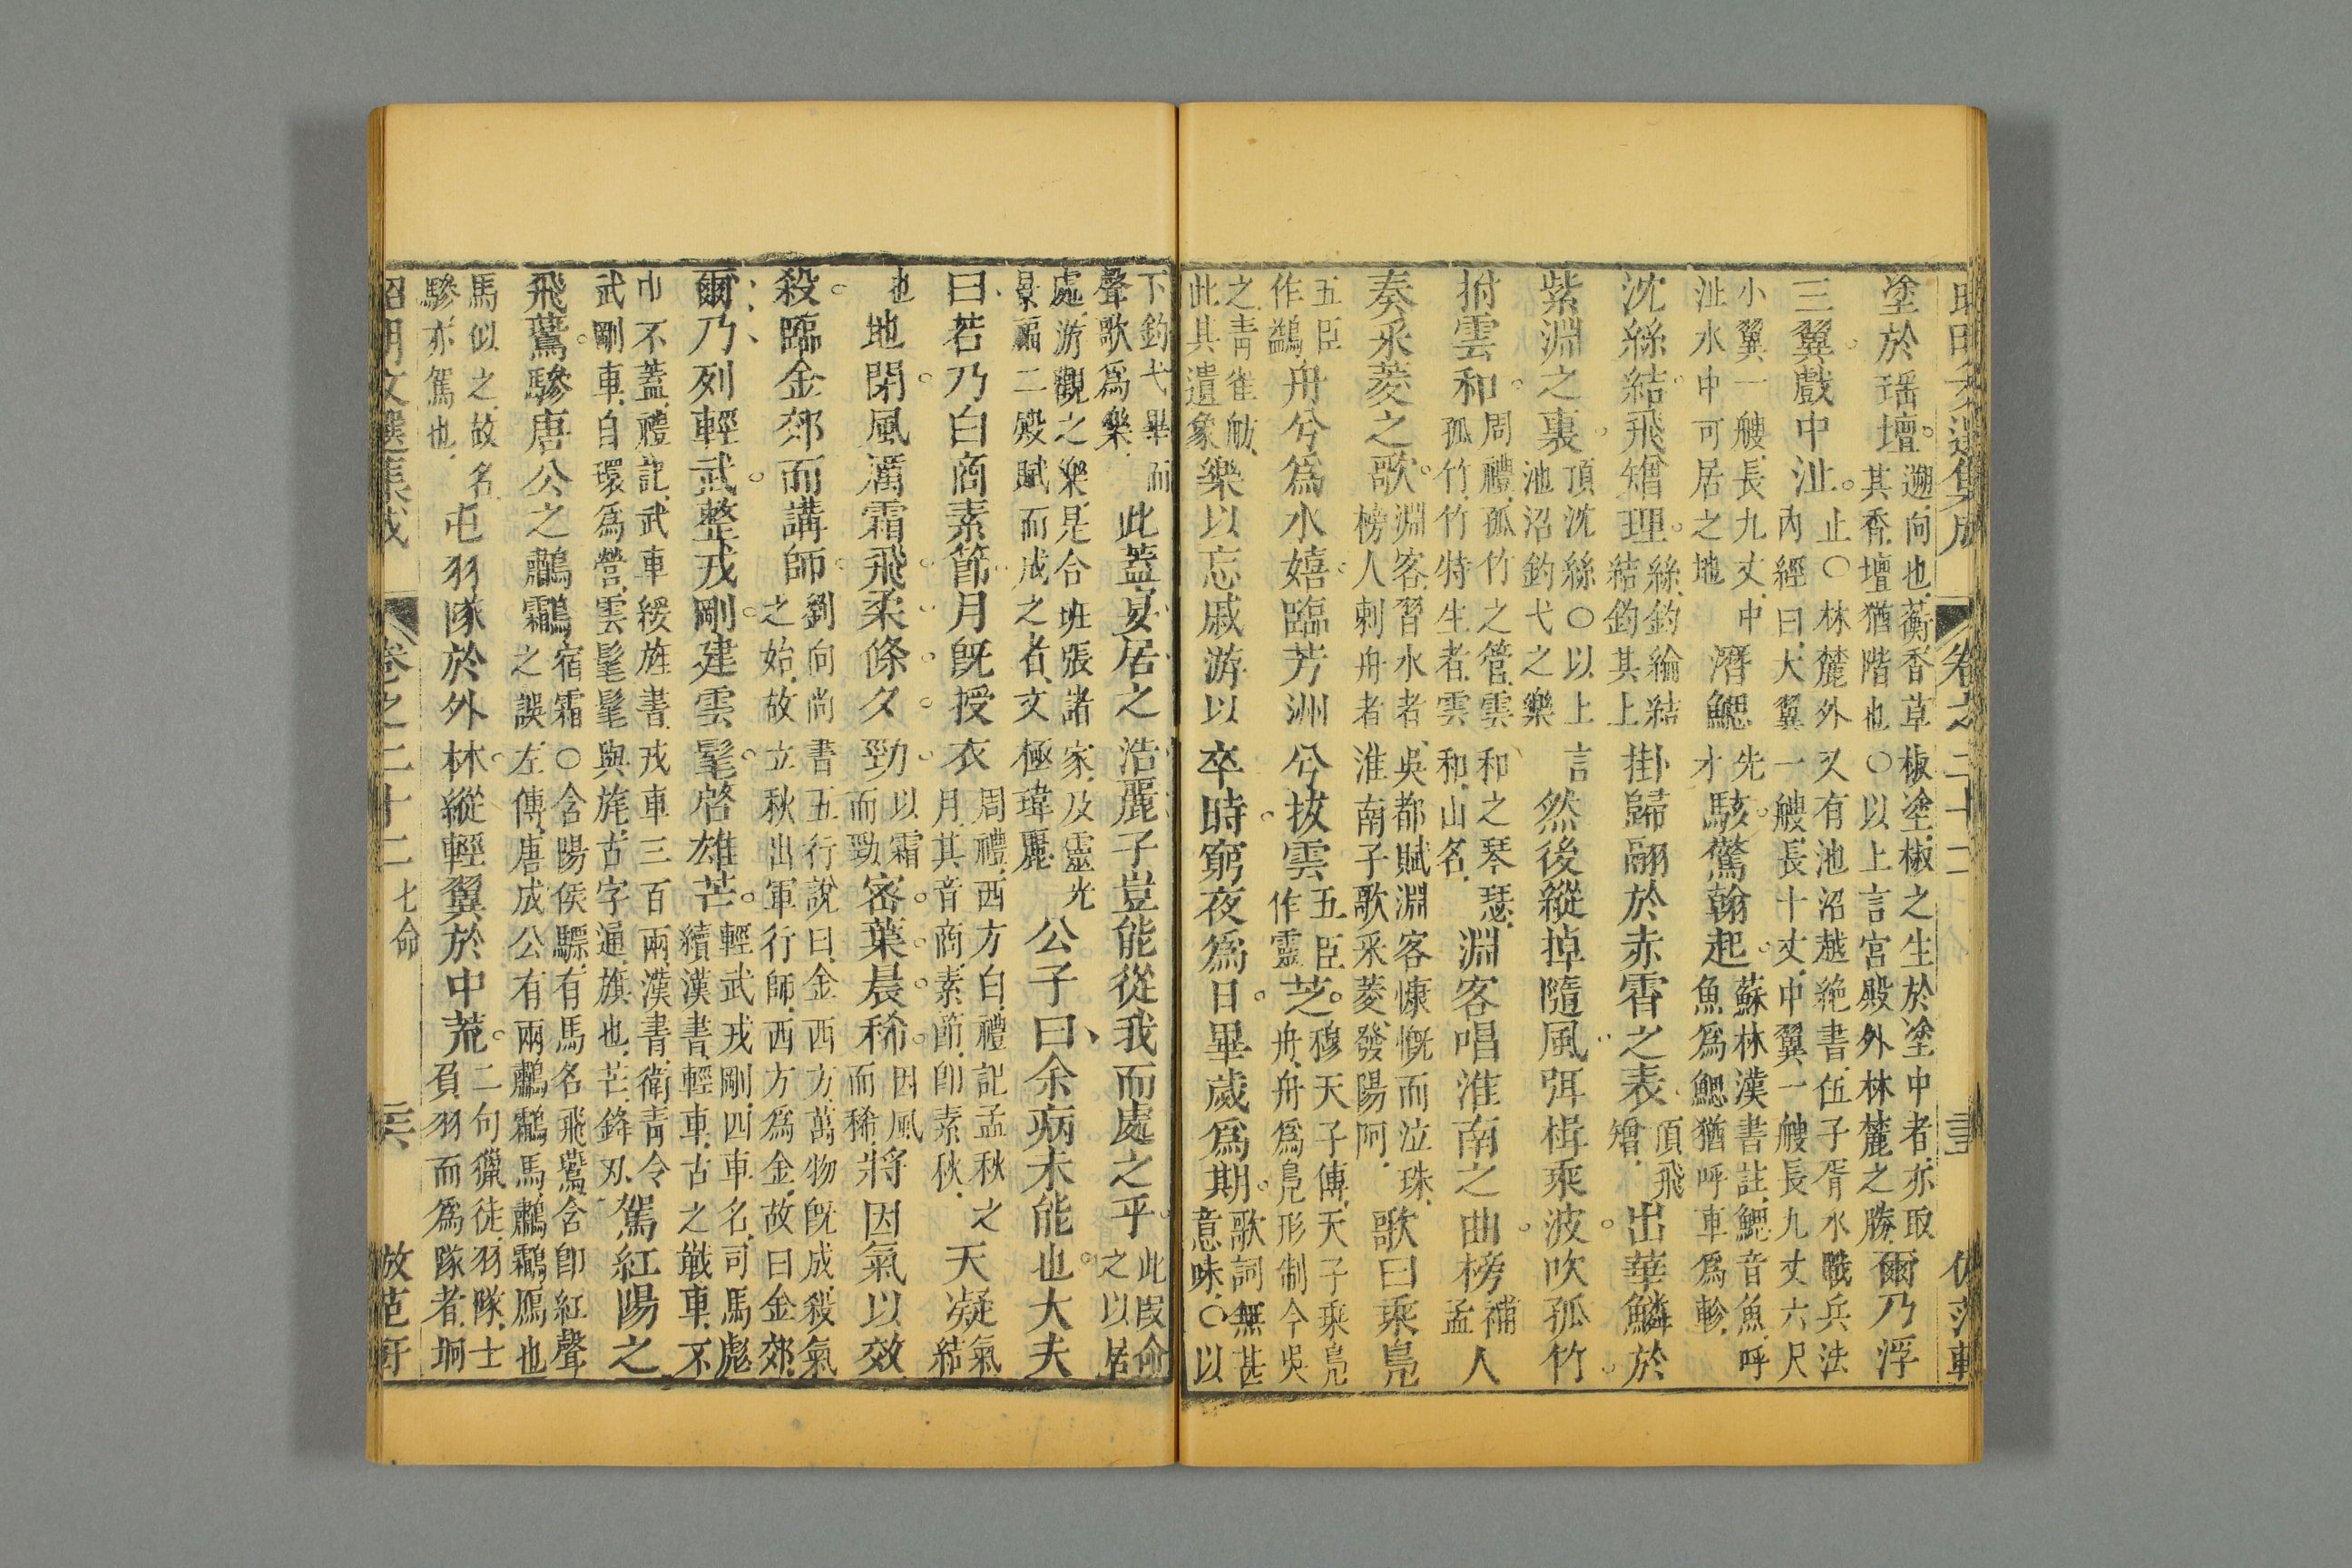 昭明文選集成 卷之二十二 倣范軒
塗於瑶壇。遡向也蘅香草椒塗椒之生於塗中者亦取其香壇猶階也○以上言宮殿外林麓之勝爾乃浮
三翼。戲中沚。止○林麓外又有池沼越絶書伍子胥水戰兵法內經曰大翼一艘長十丈中翼一艘長九丈六尺
小翼一艘長九丈中沚水中可居之地潛鰓先才駭。驚翰起。蘇林漢書註鰓音魚呼魚爲鰓猶呼車爲軫
沈絲結。飛矰理。絲釣綸結結釣其上掛歸翮於赤霄之表頂飛矰出華鱗於
紫淵之裏。頂沈絲○以上言池沼釣弋之樂然後縱棹隨風弭楫乘波。吹孤竹。
拊雲和。周禮孤竹之管雲和之琴瑟孤竹竹特生者雲和山名淵客唱淮南之曲。榜補孟人
奏采菱之歌。淵客習水者吳都賦淵客慷慨而泣珠榜人刺舟者淮南子歌采菱發陽阿歌曰乘鳧
五臣作鷁舟兮爲水嬉。臨芳洲兮拔雲五臣作靈芝。穆天子傳天子乘鳧舟舟爲鳧形制今吳
之靑雀舫此其遺象樂以忘戚游以卒時。窮夜爲日。畢歲爲期。歌詞無甚意味○以
下釣弋畢而聲歌爲樂此蓋宴居之浩麗子豈能從我而處之乎。此段命之以居
處游觀之樂是合班張諸家及靈光景福二殿賦而成之者文極瑋麗公子曰余病未能也。大夫
曰若乃白商素節月旣授衣周禮西方白禮記孟秋之月其音商素節卽素秋天凝氣結
也地閉。風厲霜飛。柔條夕勁。以霜而勁密葉晨稀。因風而稀將因氣以效
殺。臨金郊而講師。劉向尚書五行說曰金西方萬物旣成殺氣之始故立秋出軍行師西方爲金故曰金郊
爾乃列輕武。整戎剛。建雲髦。啓雄芒。輕武戎剛四車名司馬彪續漢書輕車古之戰車不
巾不蓋禮記武車綏旌書戎車三百兩漢書衛靑令武剛車自環爲營雲髦髦與旄古字通旗也芒鋒刃駕紅陽之
飛鷰。驂唐公之鷫鸘宿霜○含陽侯驃有馬名飛鷰含卽紅聲之誤左傳唐成公有兩鷫鸘馬鷫鸘鴈也
馬似之故名驂亦駕也屯羽隊於外林。縱輕翼於中荒。二句獵徒羽隊士負羽而爲隊者坰
昭明文選集成 卷之二十二 七命 倣范軒